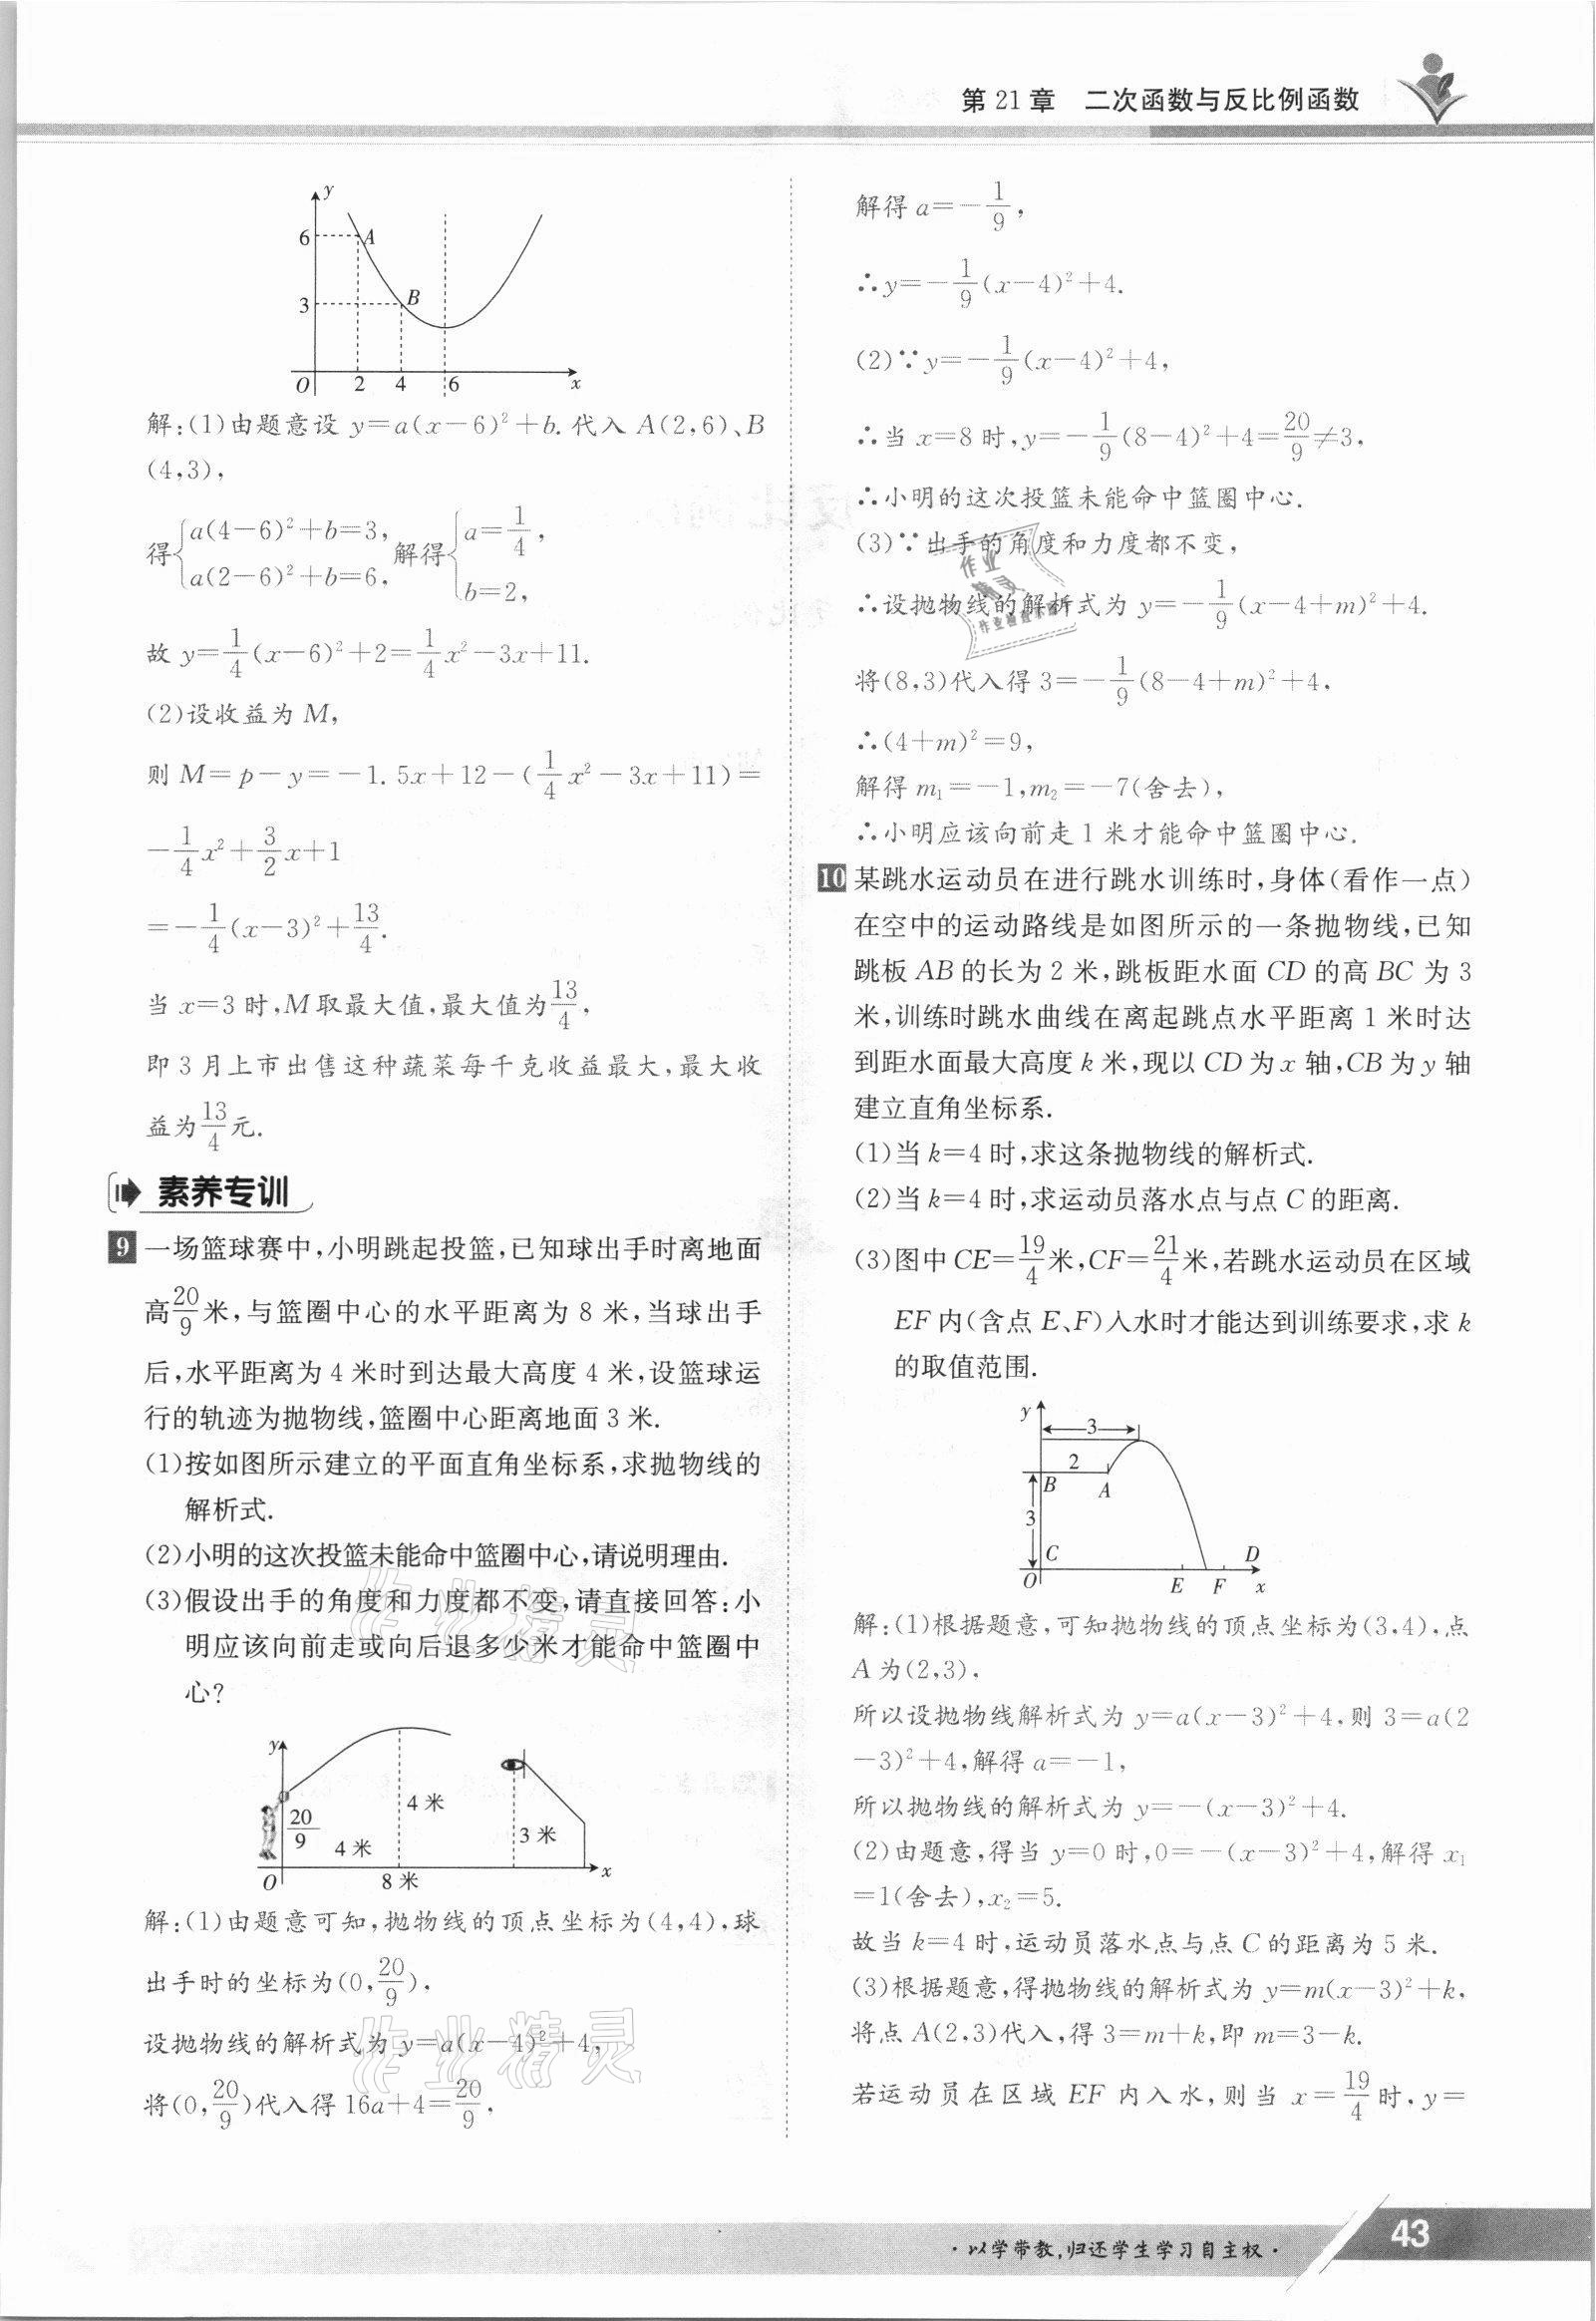 第21章 二次函数与反比例函数
y
6
A
3
B
O 2 4 6 x
解:(1)由题意设 y=a(x-6)²+b. 代入 A(2,6)、B
(4,3),
得{a(4-6)²+b=3, a(2-6)²+b=6, 解得{a=1/4, b=2,
故 y=1/4(x-6)²+2=1/4x²-3x+11.
(2)设收益为 M,
则 M=p-y=-1.5x+12-(1/4x²-3x+11)=
-1/4x²+3/2x+1
=-1/4(x-3)²+13/4.
当 x=3 时,M取最大值,最大值为13/4,
即 3 月上市出售这种蔬菜每千克收益最大,最大收
益为13/4元.
素养专训
9 一场篮球赛中,小明跳起投篮,已知球出手时离地面
高20/9米,与篮圈中心的水平距离为 8 米,当球出手
后,水平距离为 4 米时到达最大高度 4 米,设篮球运
行的轨迹为抛物线,篮圈中心距离地面 3 米.
(1)按如图所示建立的平面直角坐标系,求抛物线的
解析式.
(2)小明的这次投篮未能命中篮圈中心,请说明理由.
(3)假设出手的角度和力度都不变,请直接回答:小
明应该向前走或向后退多少米才能命中篮圈中
心?
y
20/9
4 米
4 米
3 米
O 8 米 x
解:(1)由题意可知,抛物线的顶点坐标为(4,4),球
出手时的坐标为(0,20/9),
设抛物线的解析式为 y=a(x-4)²+4,
将(0,20/9)代入得 16a+4=20/9,
解得 a=-1/9,
∴y=-1/9(x-4)²+4.
(2)∵y=-1/9(x-4)²+4,
∴当 x=8 时,y=-1/9(8-4)²+4=20/9≠3,
∴小明的这次投篮未能命中篮圈中心.
(3)∵出手的角度和力度都不变,
∴设抛物线的解析式为 y=-1/9(x-4+m)²+4.
将(8,3)代入得 3=-1/9(8-4+m)²+4,
∴(4+m)²=9,
解得 m₁=-1,m₂=-7(舍去),
∴小明应该向前走 1 米才能命中篮圈中心.
10 某跳水运动员在进行跳水训练时,身体(看作一点)
在空中的运动路线是如图所示的一条抛物线,已知
跳板 AB 的长为 2 米,跳板距水面 CD 的高 BC 为 3
米,训练时跳水曲线在离起跳点水平距离 1 米时达
到距水面最大高度 k 米,现以 CD 为 x 轴,CB 为 y 轴
建立直角坐标系.
(1)当 k=4 时,求这条抛物线的解析式.
(2)当 k=4 时,求运动员落水点与点 C 的距离.
(3)图中 CE=19/4米,CF=21/4米,若跳水运动员在区域
EF 内(含点 E、F)入水时才能达到训练要求,求 k
的取值范围.
y
3
2
B A
3
C D
O E F x
解:(1)根据题意,可知抛物线的顶点坐标为(3,4),点
A 为(2,3),
所以设抛物线解析式为 y=a(x-3)²+4,则 3=a(2
-3)²+4,解得 a=-1,
所以抛物线的解析式为 y=-(x-3)²+4.
(2)由题意,得当 y=0 时,0=-(x-3)²+4,解得 x₁
=1(舍去),x₂=5.
故当 k=4 时,运动员落水点与点 C 的距离为 5 米.
(3)根据题意,得抛物线的解析式为 y=m(x-3)²+k,
将点 A(2,3)代入,得 3=m+k,即 m=3-k.
若运动员在区域 EF 内入水,则当 x=19/4时,y=
作业精灵
作业精灵
作业
精灵
·以学带教,归还学生学习自主权·
43